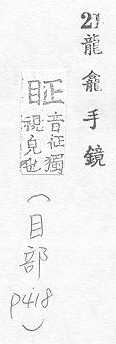 21龍龕手鏡
眐
音征獨
視皃也
(目部
p418)